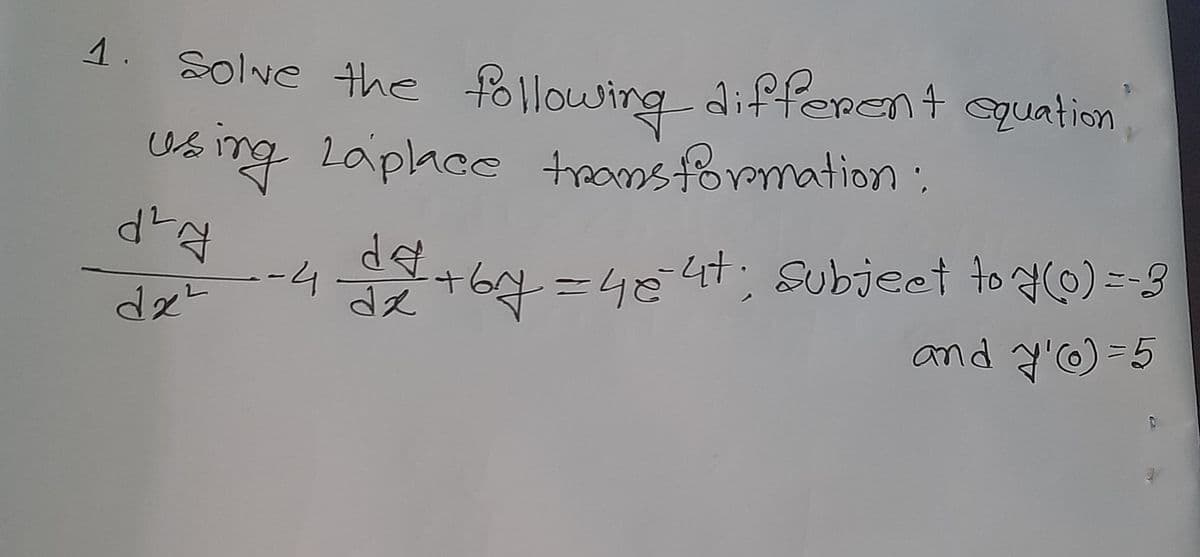 1. Solve the following different equation
using Laplace transformation:
d²y/dx² - 4 dy/dx + 6y = 4e^-4t; Subject to y(0)=-3
and y'(0)=5